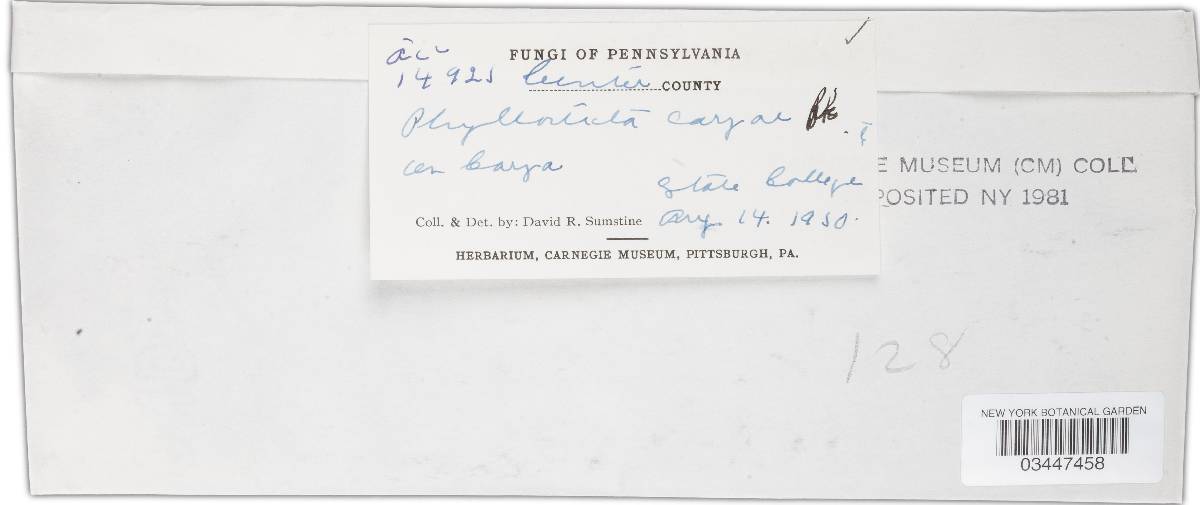 acc
14925 Center COUNTY
FUNGI OF PENNSYLVANIA
Phyllosticta caryae Pk.
on Carya
State College
Coll. & Det. by: David R. Sumstine Aug. 14. 1930.
HERBARIUM, CARNEGIE MUSEUM, PITTSBURGH, PA.
E MUSEUM (CM) COLL
POSITED NY 1981
128
NEW YORK BOTANICAL GARDEN
03447458